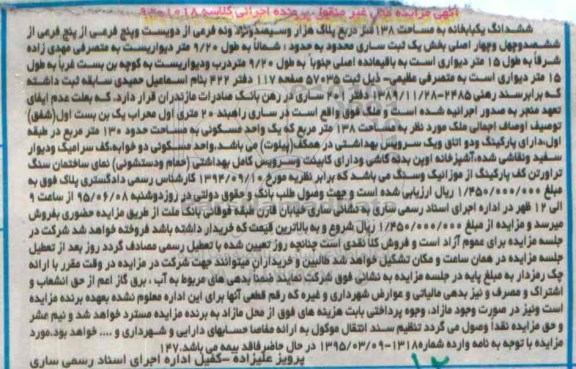 آگهی مزایده مال غیر منقول پرونده اجرائی کلاسه ۹۴۰۱۰۱۸
ششدانگ یکبابخانه به مساحت ۱۳۸ متر مربع پلاک هزار وسیصدونود ونه فرعی از دویست وپنج فرعی از پنج فرعی از
ششصدوچهل وچهار اصلی بخش یک ثبت ساری محدود به حدود : شمالا به طول ۹/۲۰ متر دیواریست به متصرفی مهدی زاده
شرقا به طول ۱۵ متر دیواری است به باقیمانده اصلی جنوبا به طول ۹/۲۰ متردرب ودیواریست به کوچه بن بست غربا به طول
۱۵ متر دیواری است به متصرفی عظیمی- ذیل ثبت ۵۷۰۳۵ صفحه ۱۱۷ دفتر ۴۲۲ بنام اسماعیل حمیدی سابقه ثبت داشته
که برابرسند رهنی ۲۴۸۵-۸۹/۱۱/۲۸ دفتر ساری در رهن بانک صادرات مازندران قرار دارد. که بعلت عدم ایفای
تعهد منجر به صدور اجرائیه شده است و ملک فوق واقع است در ساری راهبند ۲۰ متری اول محراب یک بن بست اول(شفق)
توصیف اوصاف اجمالی ملک مورد نظر به مساحت ۱۳۸ متر مربع که یک واحد مسکونی به مساحت حدود ۱۳۰ متر مربع در طبقه
اول،دارای پارکینگ ودو اتاق ویک سرویس بهداشتی در همکف(پیلوت) می باشد.واحد مسکونی دو خوابه،کف سرامیک ودیوار
سفید ونقاشی شده،آشپزخانه اوپن بدنه کاشی ودارای کابینت وسرویس کامل بهداشتی (حمام ودستشوئی) نمای ساختمان سنگ
تراورتن کف پارکینگ از موزائیک وسنگ می باشد که برابر نظریه مورخ ۱۳۹۴/۰۹/۱۰ کارشناس رسمی دادگستری پلاک فوق به
مبلغ ۱/۴۵۰/۰۰۰/۰۰۰ ریال ارزیابی شده است و جهت وصول طلب بانک و حقوق دولتی در روزدوشنبه ۹۵/۰۶/۰۸ از ساعت ۹
الی ۱۲ ظهر در اداره اجرای اسناد رسمی ساری به نشانی ساری خیابان قارن طبقه فوقانی بانک ملت از طریق مزایده حضوری بفروش
میرسد و مزایده از مبلغ ۱/۴۵۰/۰۰۰/۰۰۰ ریال شروع و به بالاترین قیمت که خریدار داشته باشد فروخته خواهد شد شرکت در
جلسه مزایده برای عموم آزاد است و فروش کلا نقدی است چنانچه روز تعیین شده با تعطیل رسمی مصادف گردد روز بعد از تعطیل
جلسه مزایده در همان ساعت و مکان تشکیل خواهد شد طالبین و خریداران میتوانند جهت شرکت در مزایده در وقت مقرر با ارائه
چک رمزدار به مبلغ پایه در جلسه مزایده به نشانی فوق شرکت نمایند ضمنا بدهی های مربوط به آب ، برق گاز اعم از حق انشعاب و
اشتراک و مصرف و نیز بدهی مالیاتی و عوارض شهرداری و غیره که رقم قطعی آنها برای این اداره معلوم نشده بعهده برنده مزایده
است ونیز در صورت وجود مازاد، وجوه پرداختی بابت هزینه های فوق از محل مازاد به برنده مزایده مسترد خواهد شد و نیم عشر
و حق مزایده نقدا وصول می گردد تنظیم سند انتقال موکول به ارائه مفاصا حسابهای دارایی و شهرداری و .... خواهد بود.مورد
مزایده با توجه به نامه وارده شماره ۱۳۱۸-۱۳۹۵/۰۳/۰۹ در حال حاضرفاقد بیمه می باشد.۱۴۷
پرویز علیزاده -کفیل اداره اجرای اسناد رسمی ساری